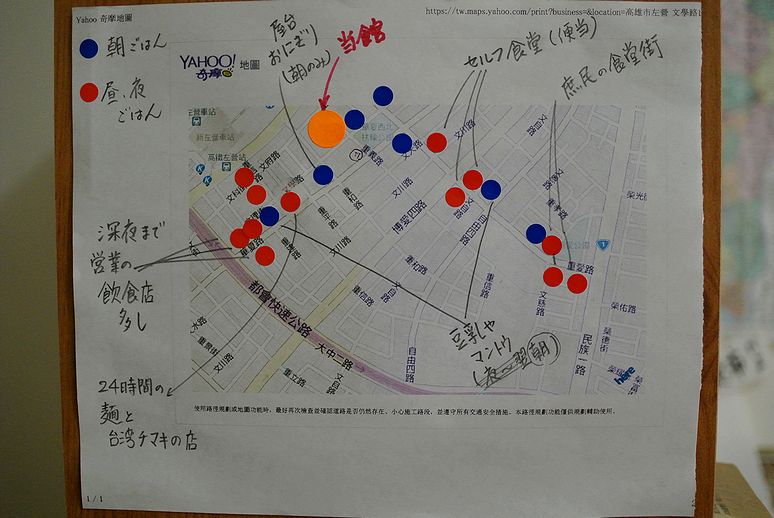 Yahoo 奇摩地圖
https://tw.maps.yahoo.com/print?business=&location=高雄市左營 文學路
朝ごはん
昼、夜
ごはん
YAHOO!
奇摩
地圖
屋台
おにぎり
(朝のみ)
当館
セルフ食堂(便当)
庶民の食堂街
高鐵左營站
文府路
文自路
重愛路
文慈路
重信路
自由四路
民族一路
榮佑路
榮德街
重和路
文川路
重信路
重立路
文自路
大中二路
都會快速公路
重景街
文三路
here
深夜まで
営業の
飲食店
多し
豆乳や
マントウ
(夜〜翌朝)
24時間の
麺と
台湾チマキの店
使用路徑規劃或地圖功能時,最好再次檢查並確認道路是否仍然存在、小心施工路段,並遵守所有交通安全措施。本路徑規劃功能僅供規劃輔助使用。
1 / 1